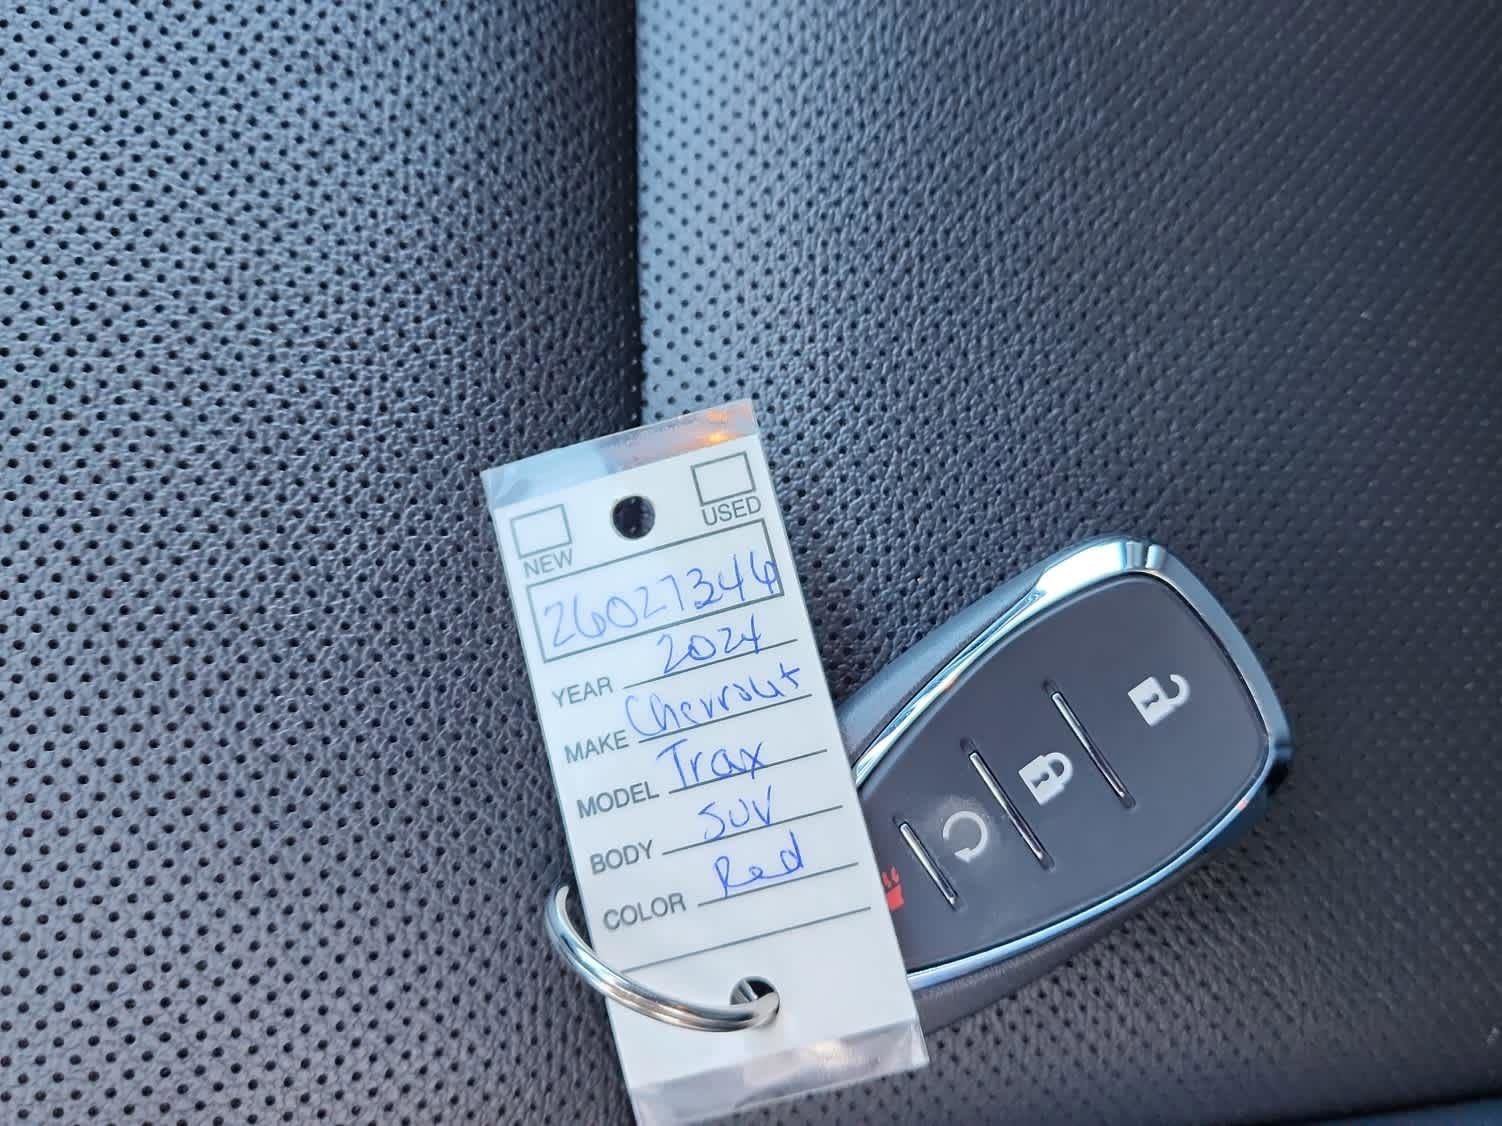 NEW USED
26027346
YEAR 2024
MAKE Chevrolet
MODEL Trax
BODY SUV
COLOR Red